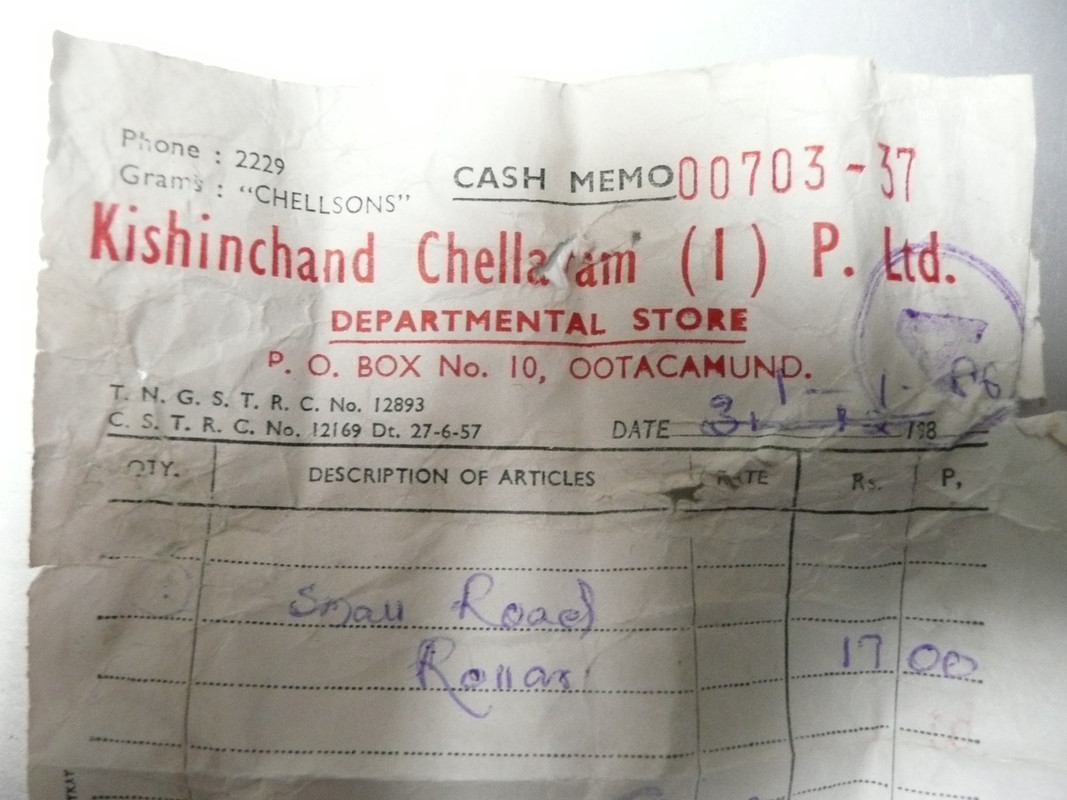 Phone : 2229
Grams : "CHELLSONS"
CASH MEMO 00703-37
Kishinchand Chellaram (I) P. Ltd.
DEPARTMENTAL STORE
P. O. BOX No. 10, OOTACAMUND.
T. N. G. S. T. R. C. No. 12893
C. S. T. R. C. No. 12169 Dt. 27-6-57
DATE 198
QTY. DESCRIPTION OF ARTICLES RATE Rs. P.
Small Road
Rollar 17 00